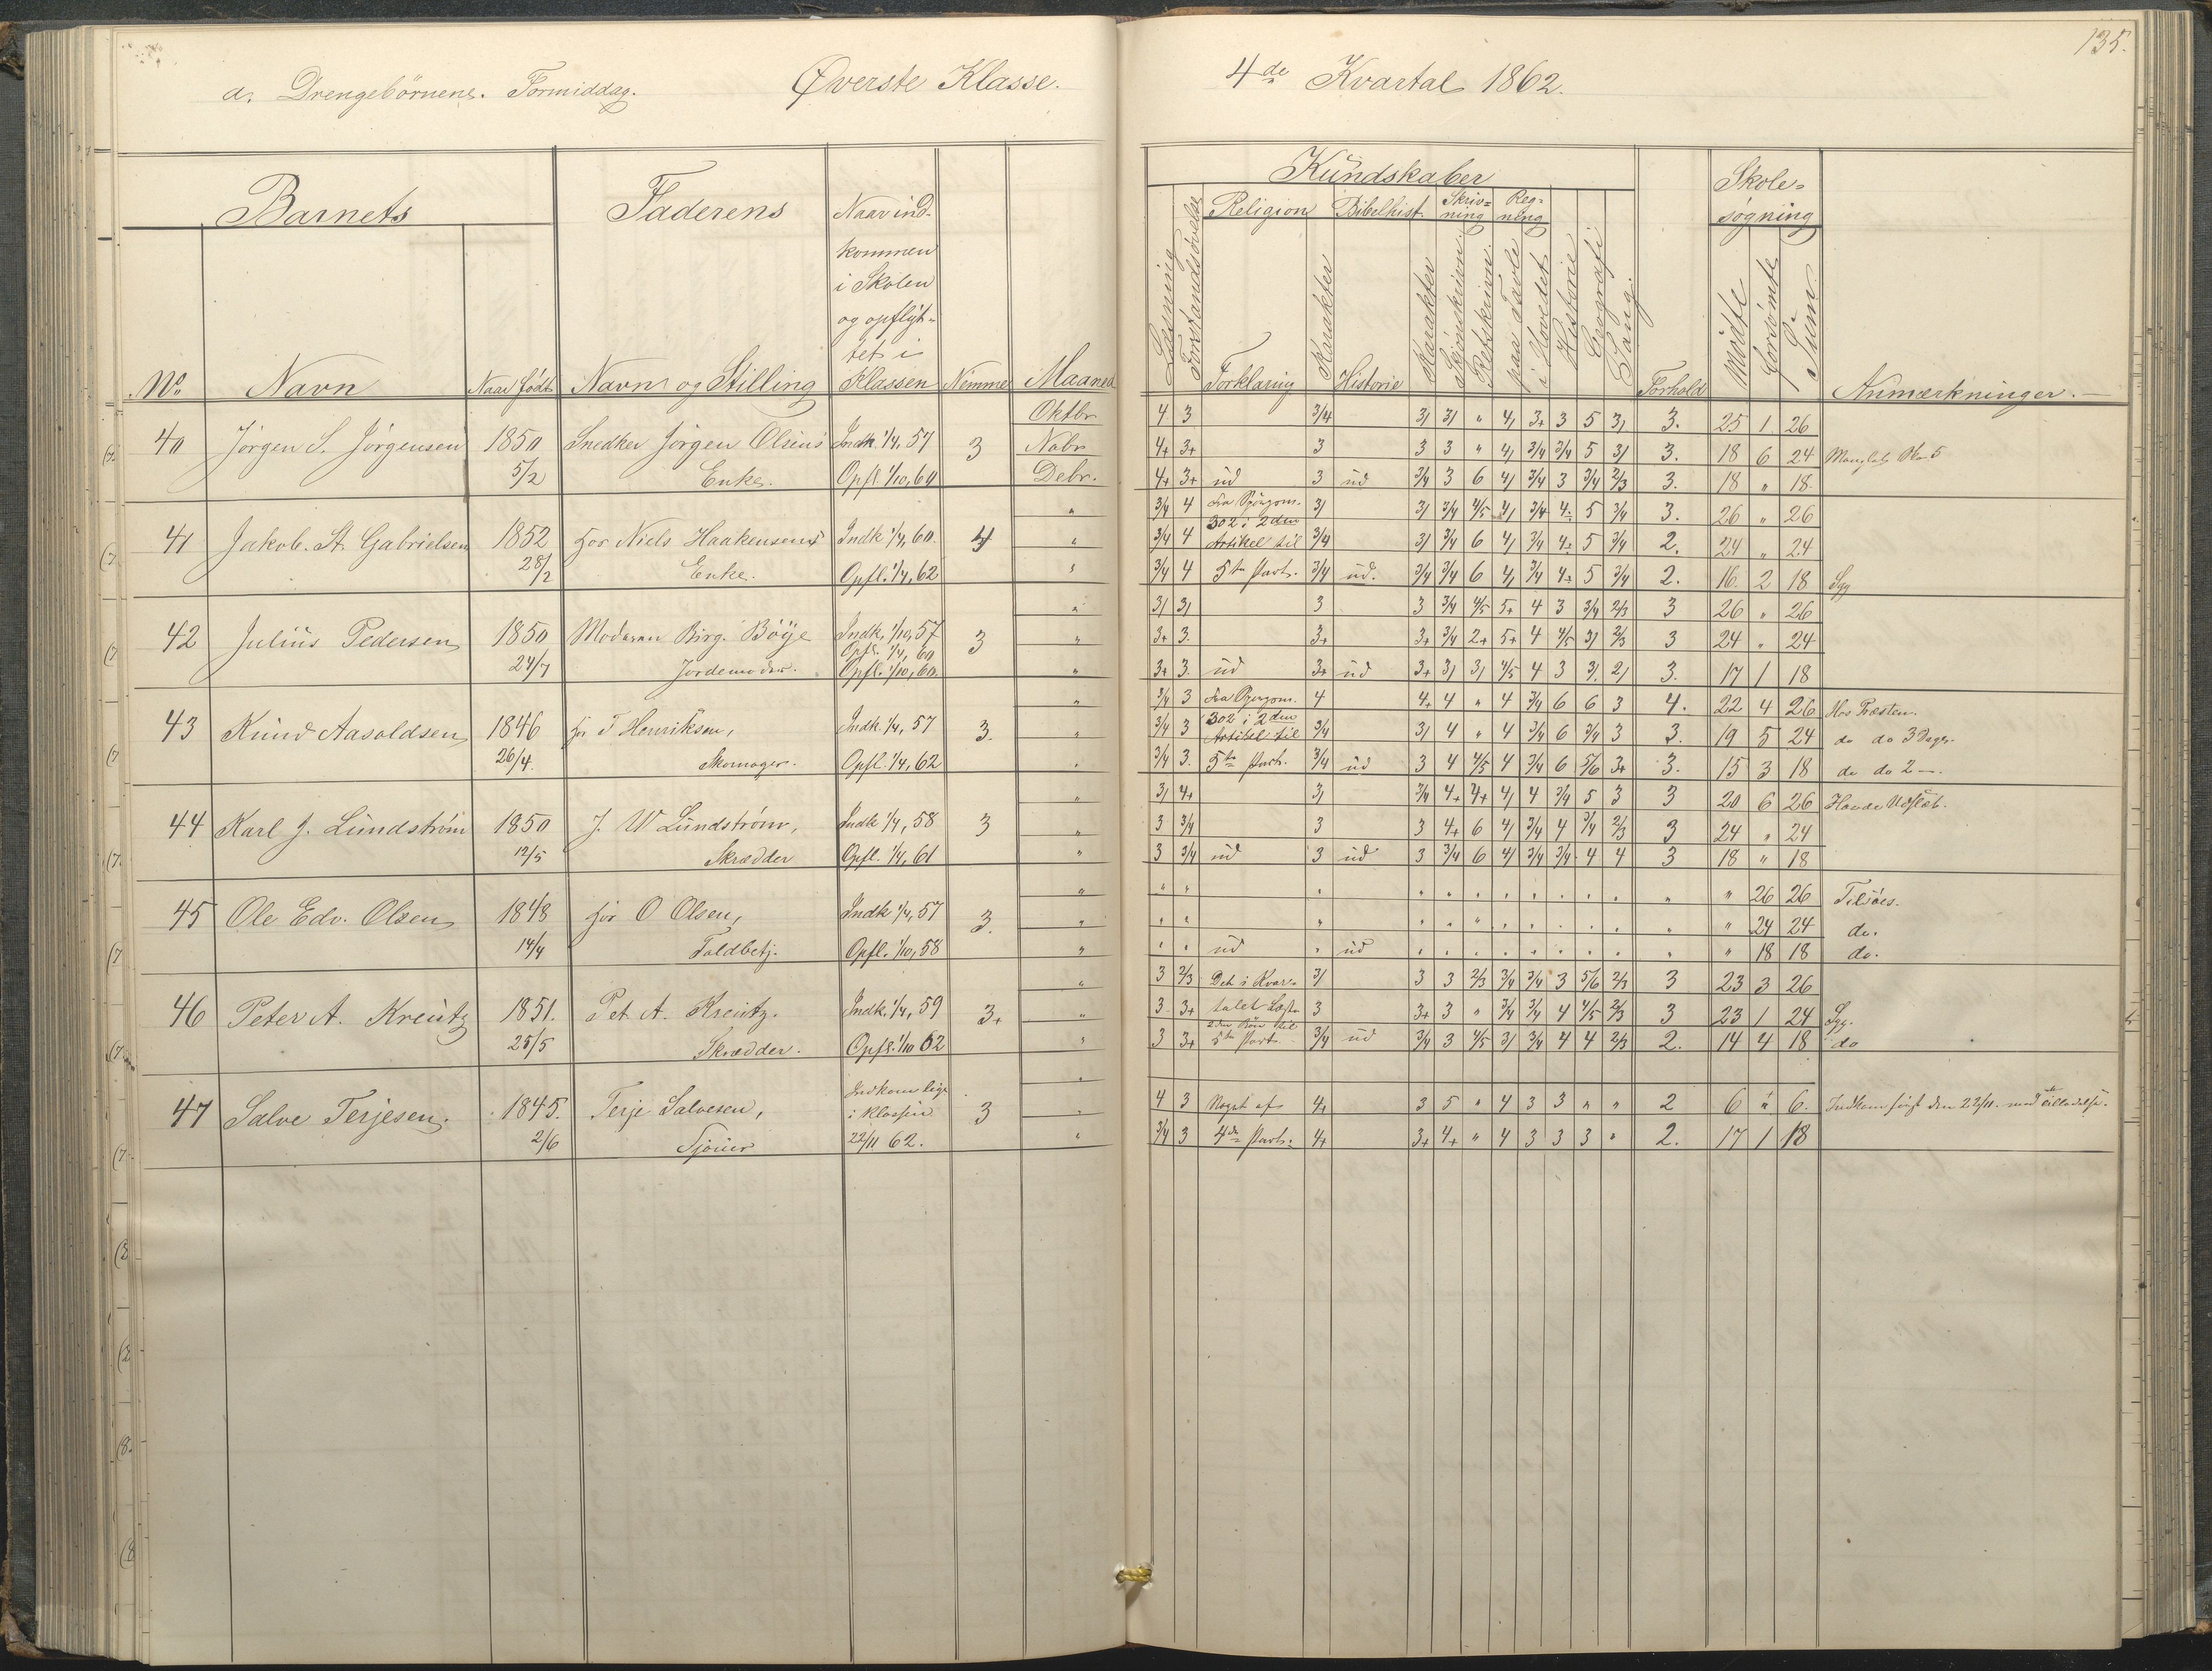 a. Drengebørnene. Formiddag. Øverste Klasse.
4de Kvartal 1862.
135.
Barnets Faderens Naar ind-
kommen
i Skolen
og opflyt-
tet i
No. Navn Naar født Navn og Stilling Klassen Nemme Maaned
Kundskaber Skole-
søgning
Religion Bibelhist. Skriv-
ning Reg-
ning
Læsning Forstandsøvelse Forklaring Karakter Historie Karakter Skjønskrivn. Retskrivn. paa Tavle i Hovedet Historie Geografi Sang. Forhold Mødte Forsømte Sum Anmærkninger.
Oktbr 4 3 3/4 3/ 3/ " 4/ 3+ 3 5 3/ 3. 25 1 26
40 Jørgen S. Jørgensen 1850 Snedker Jørgen Olsens Indk. 1/4, 57 3 Nobr 4+ 3+ 3 3 3 " 4/ 3/4 3/4 5 3/ 3. 18 6 24
5/2 Enke. Opfl. 1/10, 60 Debr. 4+ 3+ ud 3 ud 3/4 3 6 4/ 3/4 3 3/4 2/3 3. 18 " 18.
" 3/4 4 3/ 3/ 3/4 4/5 4/ 3/4 4. 5 3/4 3. 26 " 26
302 i 2den
41 Jakob. St. Gabrielsen 1852 for Niels Haakensens Indk 1/4, 60. 4 " 3/4 4 Artikel til 3/4 3/ 3/4 6 4/ 3/4 4+ 5 3/4 2. 24 " 24
28/2 Enke. Opfl. 1/4, 62 " 3/4 4 5te Part. 3/4 ud. 3/4 3/4 6 4/ 3/4 4+ 5 3/4 2. 16. 2 18 Syg
" 3/ 3/ 3 3 3/4 4/5 5+ 4 3 3/4 2/3 3 26 " 26
42 Julius Pedersen 1850 Moderen Birg. Böÿe Indk. 1/10, 57 3 " 3+ 3. 3+ 3+ 3/4 2+ 5+ 4 4/5 3/ 2/3 3 24 " 24
Opfl. 1/4, 60
24/7 Jordemoder. Opfl. 1/10, 60. " 3+ 3. ud 3+ ud 3+ 3/ 3/ 4/5 4 3 3/ 2/ 3. 17 1 18
" 3/4 3 4 4+ 4 " 4 3/4 6 6 3 4. 22 4 26 Hos Præsten.
302 i 2den
43 Knud Aasoldsen 1846 for T Henriksen, Indk. 1/4, 57 3. " 3/4 3 Artikel til 3/4 3/ 4 " 4 3/4 6 3/4 3 3. 19 5 24 do do 3 Dage.
26/4. Skomager. Opfl. 1/4, 62 " 3/4 3. 5te Part. 3/4 ud 3 4 4/5 4 3/4 6 5/6 3+ 3. 15 3 18 do do 2 —.
" 3/ 4+ 3/ 3/4 4+ 4+ 4/ 4 3/4 5 3 3 20 6 26 Havde Udslæt.
44 Karl J. Lundstrøm 1850 J. W Lundstrøm, Indk 1/4, 58 3 " 3 3/4 3 3 4+ 6 4/ 3/4 4 3/4 2/3 3 24 " 24
12/5 Skrædder Opfl. 1/4, 61 " 3 3/4 ud 3 ud 3 3/4 6 4/ 3/4 3/4 4 4 3 18 " 18
" " " " " " " " " " " " " " " 26 26 Tilsöes.
45 Ole Edv. Olsen 1848 for O Olsen, Indk 1/4, 57 3. " " " " " " " " " " " " " " " 24 24 do.
14/4 Toldbetj. Opfl. 1/10, 58 " " " ud " ud " " " " " " " " " " 18 18 do.
" 3 2/3 Det i Kvar- 3/ 3 3 2/3 3/4 3/4 3 5/6 2/3 3 23 3 26
46 Peter A. Kreutz 1851. Pet A. Kreutz. Indk. 1/4, 59 3+ " 3 3+ talet Læste 3 3+ 3 " 3/4 3/4 4 4/5 2/3 3 23 1 24 Syg.
2den Bön til
25/5 Skrædder. Opfl. 1/10 62 " 3 3+ 5te Part. 3/4 ud 3/4 3 4/5 3/ 3/4 4 4 2/3 2. 14 4 18 do
Indkom lige "
47 Salve Terjesen. 1845. Terje Salvesen, i Klassen 3 " 4 3 Noget af 4+ 3 5 " 4 3 3 " " 2 6 " 6. Indkom først den 22/11. med tilladelse.
2/6 Sjöuer 22/11 62. " 3/4 3 4de Part. 4+ 3+ 4+ " 4 3 3 3 " 2. 17 1 18